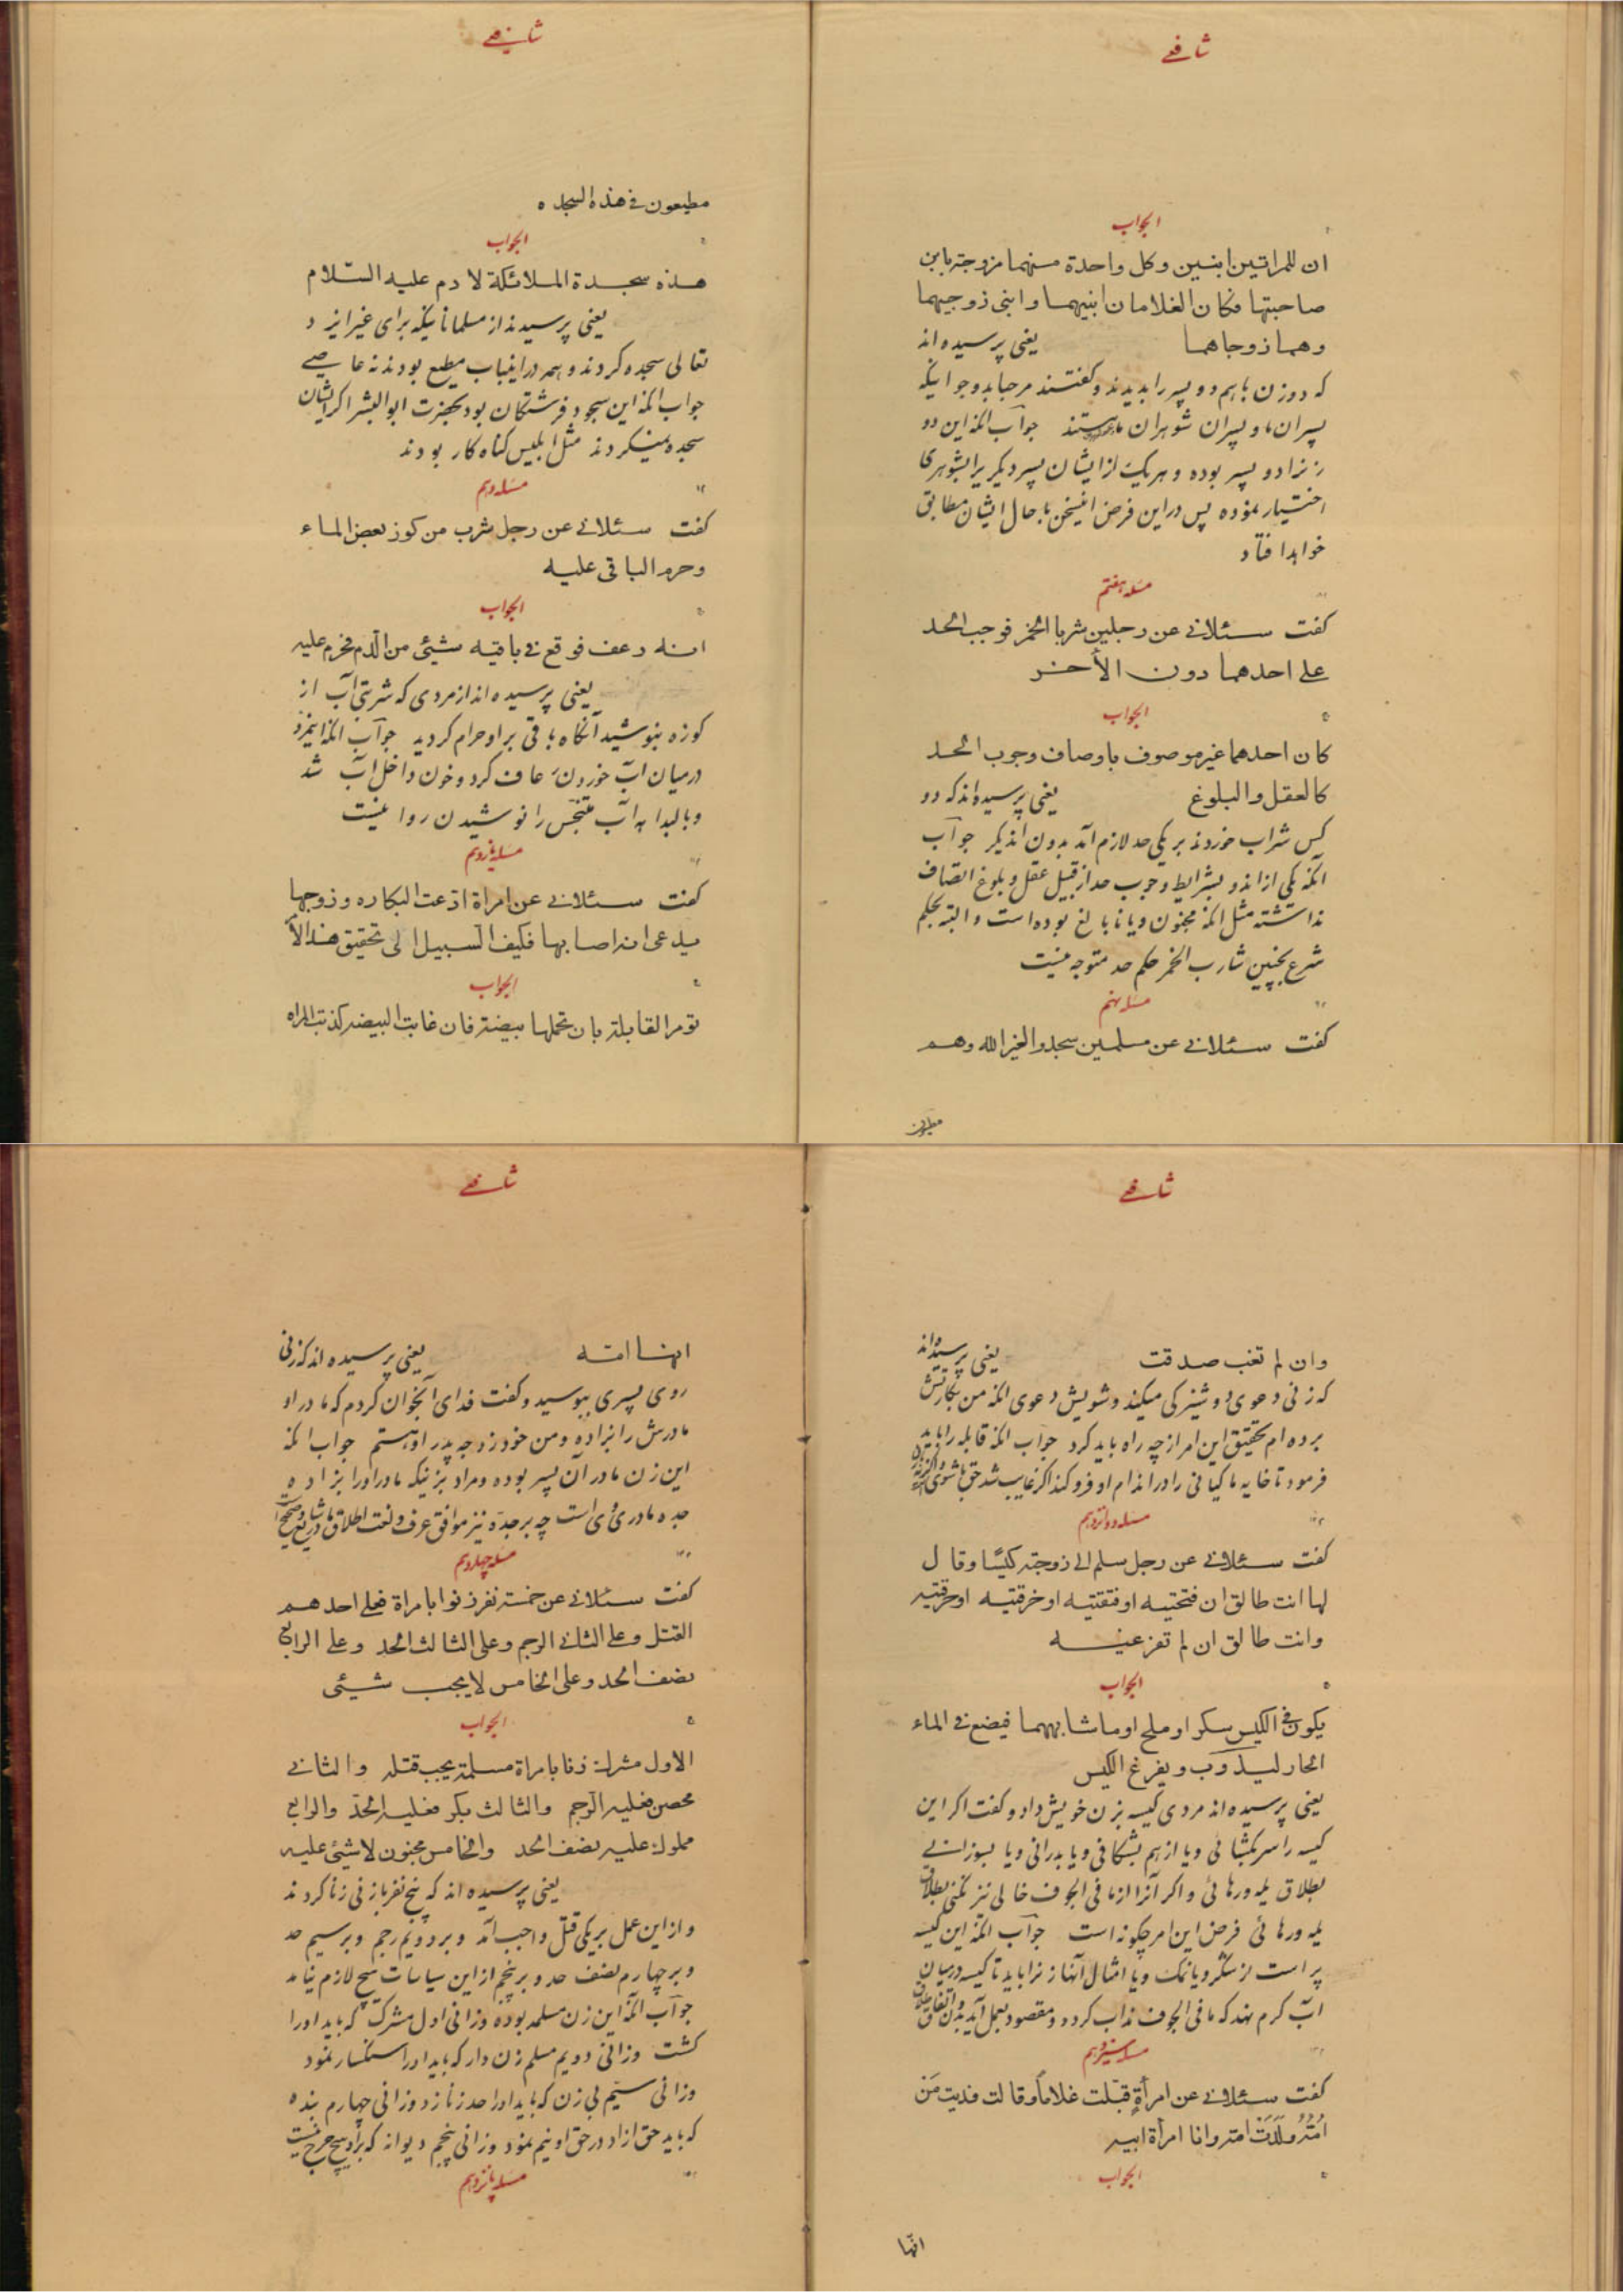 شافعی
الجواب
ان للمراتین ابنین وکل واحدة منهما مزوجة بابن
صاحبتها فکان الغلامان ابنیهما وابنی زوجیهما
وهما زوجاهما یعنی پرسیده اند
که دو زن باهم دو پسر را بدیدند و گفتند مرحبا بدو جوانیکه
پسران ما و پسران شوهران ما هستند جواب آنکه این دو
زن را دو پسر بوده و هریک از ایشان پسر دیگریرا بشوهری
اختیار نموده پس در این فرض اینسخن با حال ایشان مطابق
خواهد افتاد
مسئله هشتم
گفت سئلانی عن رجلین شربا الخمر فوجب الحد
علی احدهما دون الأخر
الجواب
کان احدهما غیر موصوف باوصاف وجوب الحد
کالعقل والبلوغ یعنی پرسیده اند که دو
کس شراب خوردند بر یکی حد لازم آمد بدون اندیگر جواب
آنکه یکی از اندو بشرایط وجوب حد از قبیل عقل و بلوغ اتصاف
نداشته مثل آنکه مجنون و یا نا بالغ بوده است و البته بحکم
شرع بچنین شارب الخمر حکم حد متوجه نیست
مسئله نهم
گفت سئلانی عن مسلمین سجدوا لغیر الله وهم
مطیعون
شافعی
مطیعون فی هذه السجده
الجواب
هذه سجدة الملائکة لادم علیه السّلام
یعنی پرسیدند از مسلمانانیکه برای غیر ایزد
تعالی سجده کردند و همه در اینباب مطیع بودند نه عاصی
جواب آنکه این سجود فرشتگان بود بحضرت ابوالبشر اگر ایشان
سجده نمیکردند مثل ابلیس گناه کار بودند
مسئله دهم
گفت سئلانی عن رجل شرب من کوز بعض الماء
وحرم الباقی علیه
الجواب
انه رعف فوقع فی باقیه شیئی من الّدم فحرم علیه
یعنی پرسیده اند از مردی که شربتی آب از
کوزه بنوشید آنگاه باقی بر او حرام گردید جواب آنکه اینمرد
درمیان آب خوردن رعاف کرد و خون داخل آب شد
و بالبداهه آب متنجّس را نوشیدن روا نیست
مسئله یازدهم
گفت سئلانی عن امراة ادّعت البکاره وزوجها
یدعی انه اصابها فکیف السبیل الی تحقیق هذا الأ
الجواب
تومر القابلة بان تحملها بیضة فان غابت البیضه کذبت المراه
شافعی
وان لم تغب صدقت یعنی پرسیده اند
که زنی دعوی دوشیزگی میکند و شویش دعوی آنکه من بکارتش
برده ام تحقیق این امر از چه راه باید کرد جواب آنکه قابله را باید
فرمود تا خایه ماکیانی را در اندام او فرو کند اگر غایب شد حق با شوی
مسئله دوازدهم
گفت سئلانی عن رجل سلم الی زوجته کیسًا وقال
لها انت طالق ان فتحتیه او فتقتیه او خرقتیه او حرقتیه
وانت طالق ان لم تفرغیه
الجواب
یکون فی الکیس سکر او ملح او ماشابهما فیضع فی الماء
الحار لیذوب ویفرغ الکیس
یعنی پرسیده اند مردی کیسه بزن خویش داد و گفت اگر این
کیسه را سر بگشائی و یا از هم بشکافی و یا بدرانی و یا بسوزانی
بطلاق یله و رهائی و اگر آنرا از ما فی الجوف خالی نیز نکنی بطلاق
یله و رهائی فرض این امر چگونه است جواب آنکه این کیسه
پر است از شکر و یا نمک و یا امثال آنها زنرا باید تا کیسه درمیان
آب گرم نهد که ما فی الجوف مذاب گردد و مقصود بعمل آید
مسئله سیزدهم
گفت سئلانی عن امرأةٍ قبّلت غلاماً وقالت فدیت مَن
امّه وَلَدَت امه وانا امرأة ابیه
الجواب
انّها
شافعی
انها امّه یعنی پرسیده اند که زنی
روی پسری ببوسید و گفت فدای آنجوان گردم که مادر او
مادرش را بزاده و من خود زوجه پدر او هستم جواب آنکه
این زن مادر آن پسر بوده و مراد بزنیکه مادر او را بزاده
جده مادری وی است چه بر جدّه نیز موافق عرف و لغت اطلاق مادر
مسئله چهاردهم
گفت سئلانی عن خمسة نفر زنوا بامراة فعلی احدهم
القتل وعلی الثانی الرجم وعلی الثالث الحد وعلی الرابع
نصف الحد وعلی الخامس لایجب شیئی
الجواب
الاول مشرك زنا بامراة مسلمة یجب قتله والثانی
محصن فعلیه الرّجم والثالث بکر فعلیه الحدّ والرابع
مملوك علیه نصف الحد والخامس مجنون لاشیئی علیه
یعنی پرسیده اند که پنج نفر با زنی زنا کردند
و از این عمل بر یکی قتل واجب آمد و بر دویم رجم و بر سیم حد
و بر چهارم نصف حد و بر پنجم از این سیاسات هیچ لازم نیامد
جواب آنکه این زن مسلمه بوده و زانی اول مشرک که باید او را
کشت و زانی دویم مسلم زن دار که باید او را سنگسار نمود
و زانی سیّم بی زن که باید او را حد زنا زد و زانی چهارم بنده
که باید حق ازاد در حق او نیم نمود و زانی پنجم دیوانه که بر او هیچ حرج نیست
مسئله پانزدهم